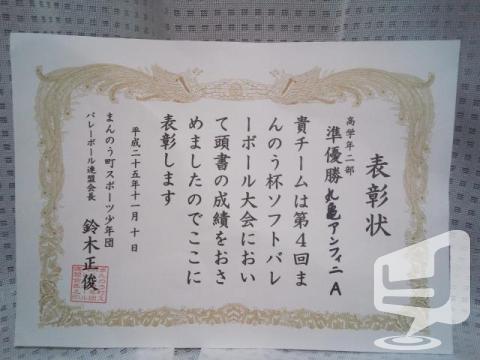 表彰状
高学年二部
準優勝 丸亀アンフィニ A
貴チームは第4回ま
んのう杯ソフトバレ
ーボール大会におい
て頭書の成績をおさ
めましたのでここに
表彰します
平成二十五年十一月 十 日
まんのう町スポーツ少年団
バレーボール連盟会長 鈴木正俊